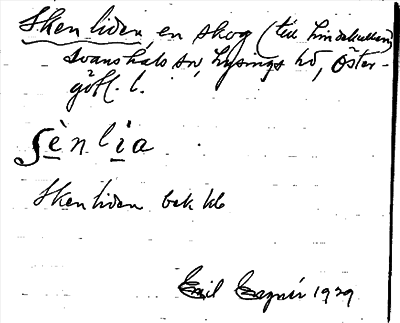 Skenliden, en skog (till Lindekullen)
Svanshals sn, Lysings hd, Öster-
götl. l.
ʃènlia
Skenliden bek kk
Emil 1929